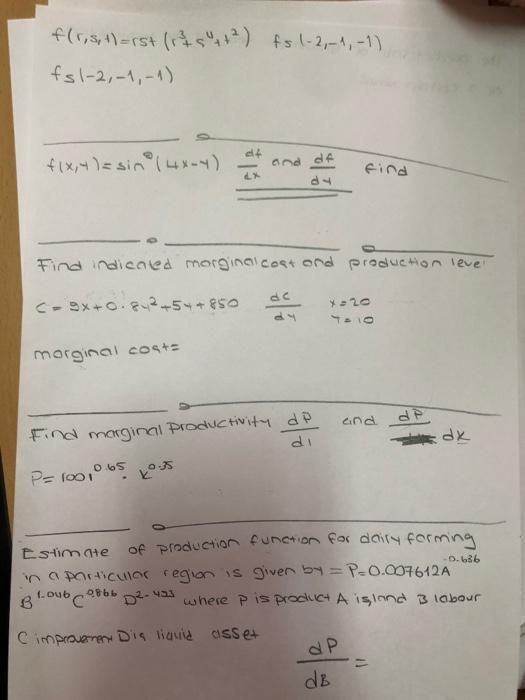 f(r,s,t)=rst (r³+s⁴+t²) fs(-2,-1,-1)
fs(-2,-1,-1)
f(x,y)=sin⁸(4x-y) df/dx and df/dy find
Find indicated marginal cost and production level
C = 9x+0.8y²+5y+850 dC/dy x=20 y=10
marginal cost=
Find marginal productivity dP/dl and dP/dk
P=100l^0.65 . k^0.35
Estimate of production function for dairy forming
in a particular region is given by = P=0.007612A^-0.636
B^1.046 C^0.866 D^2.433 where P is product A island B labour
C improvement D is liquid asset
dP/dB =